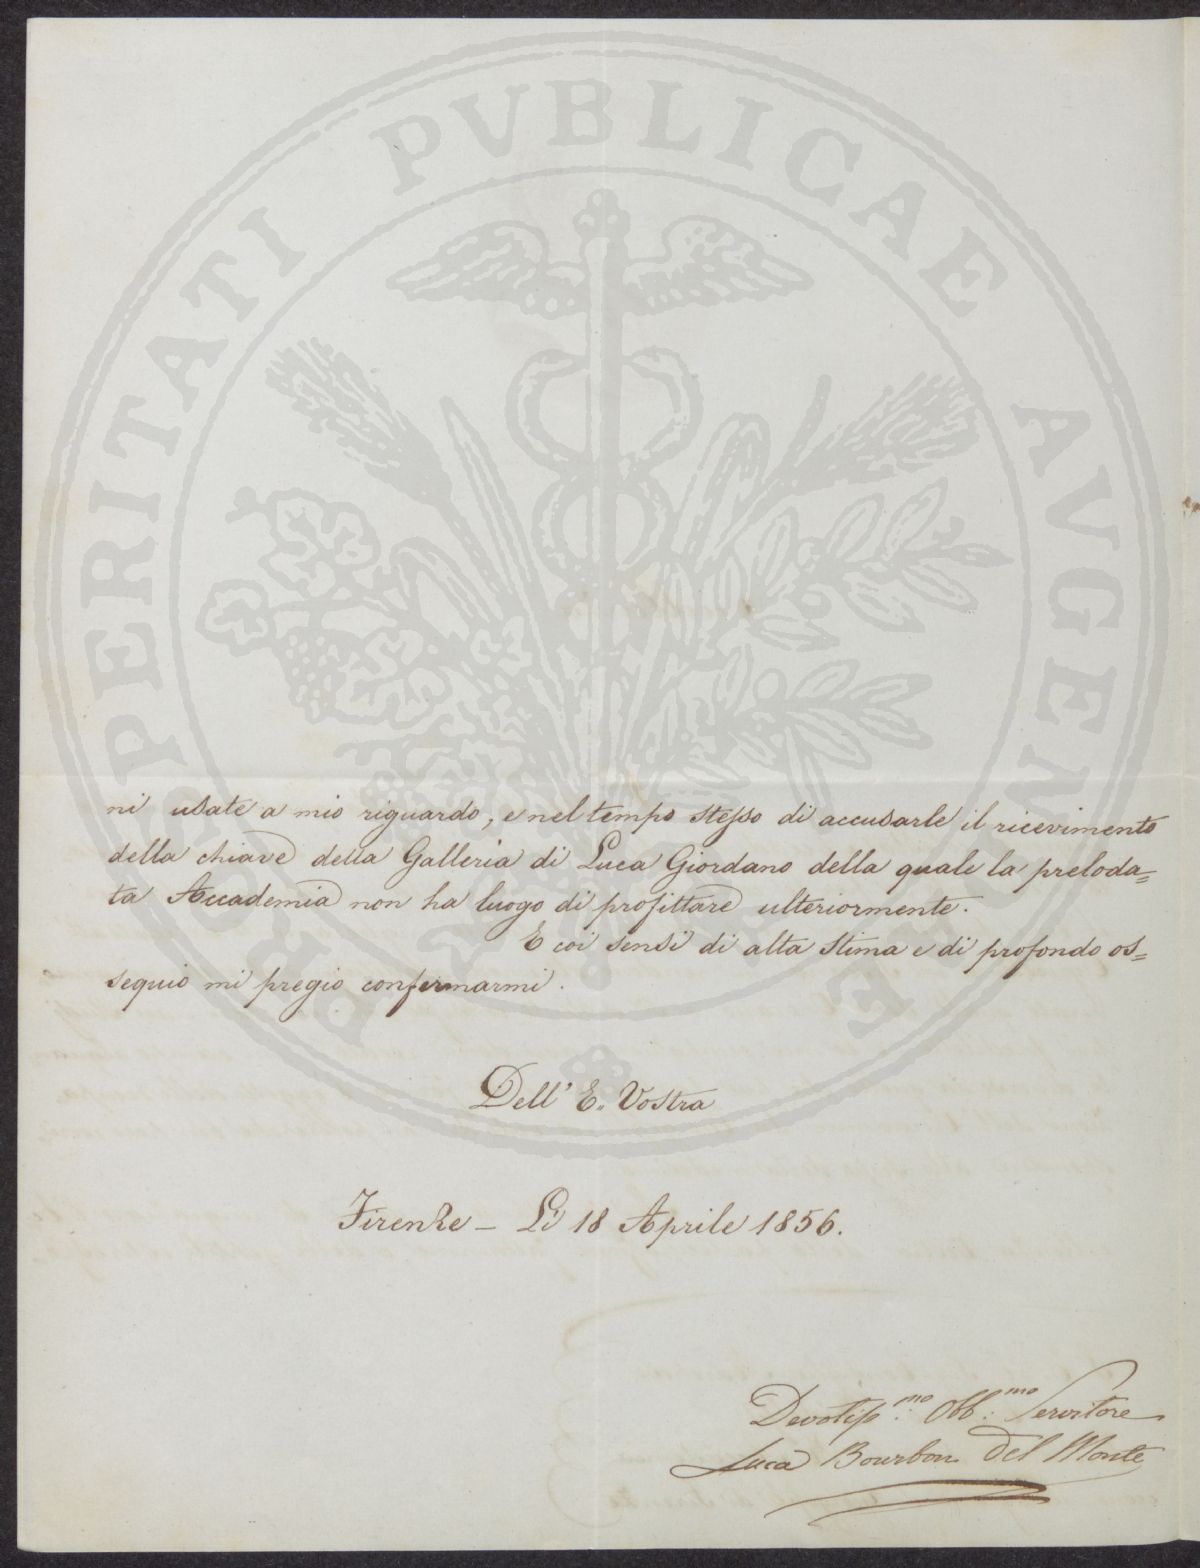 PROSPERITATI PVBLICAE AVGENDAE
ni usate a mio riguardo, e nel tempo stesso di accusarle il ricevimento
della chiave della Galleria di Luca Giordano della quale la preloda=
ta Accademia non ha luogo di profittare ulteriormente.
E coi sensi di alta stima e di profondo os=
sequio mi pregio confermarmi.
Dell' E. Vostra
Firenze – Lì 18 Aprile 1856.
Devotiss.mo Obb.mo Servitore
Luca Bourbon Del Monte